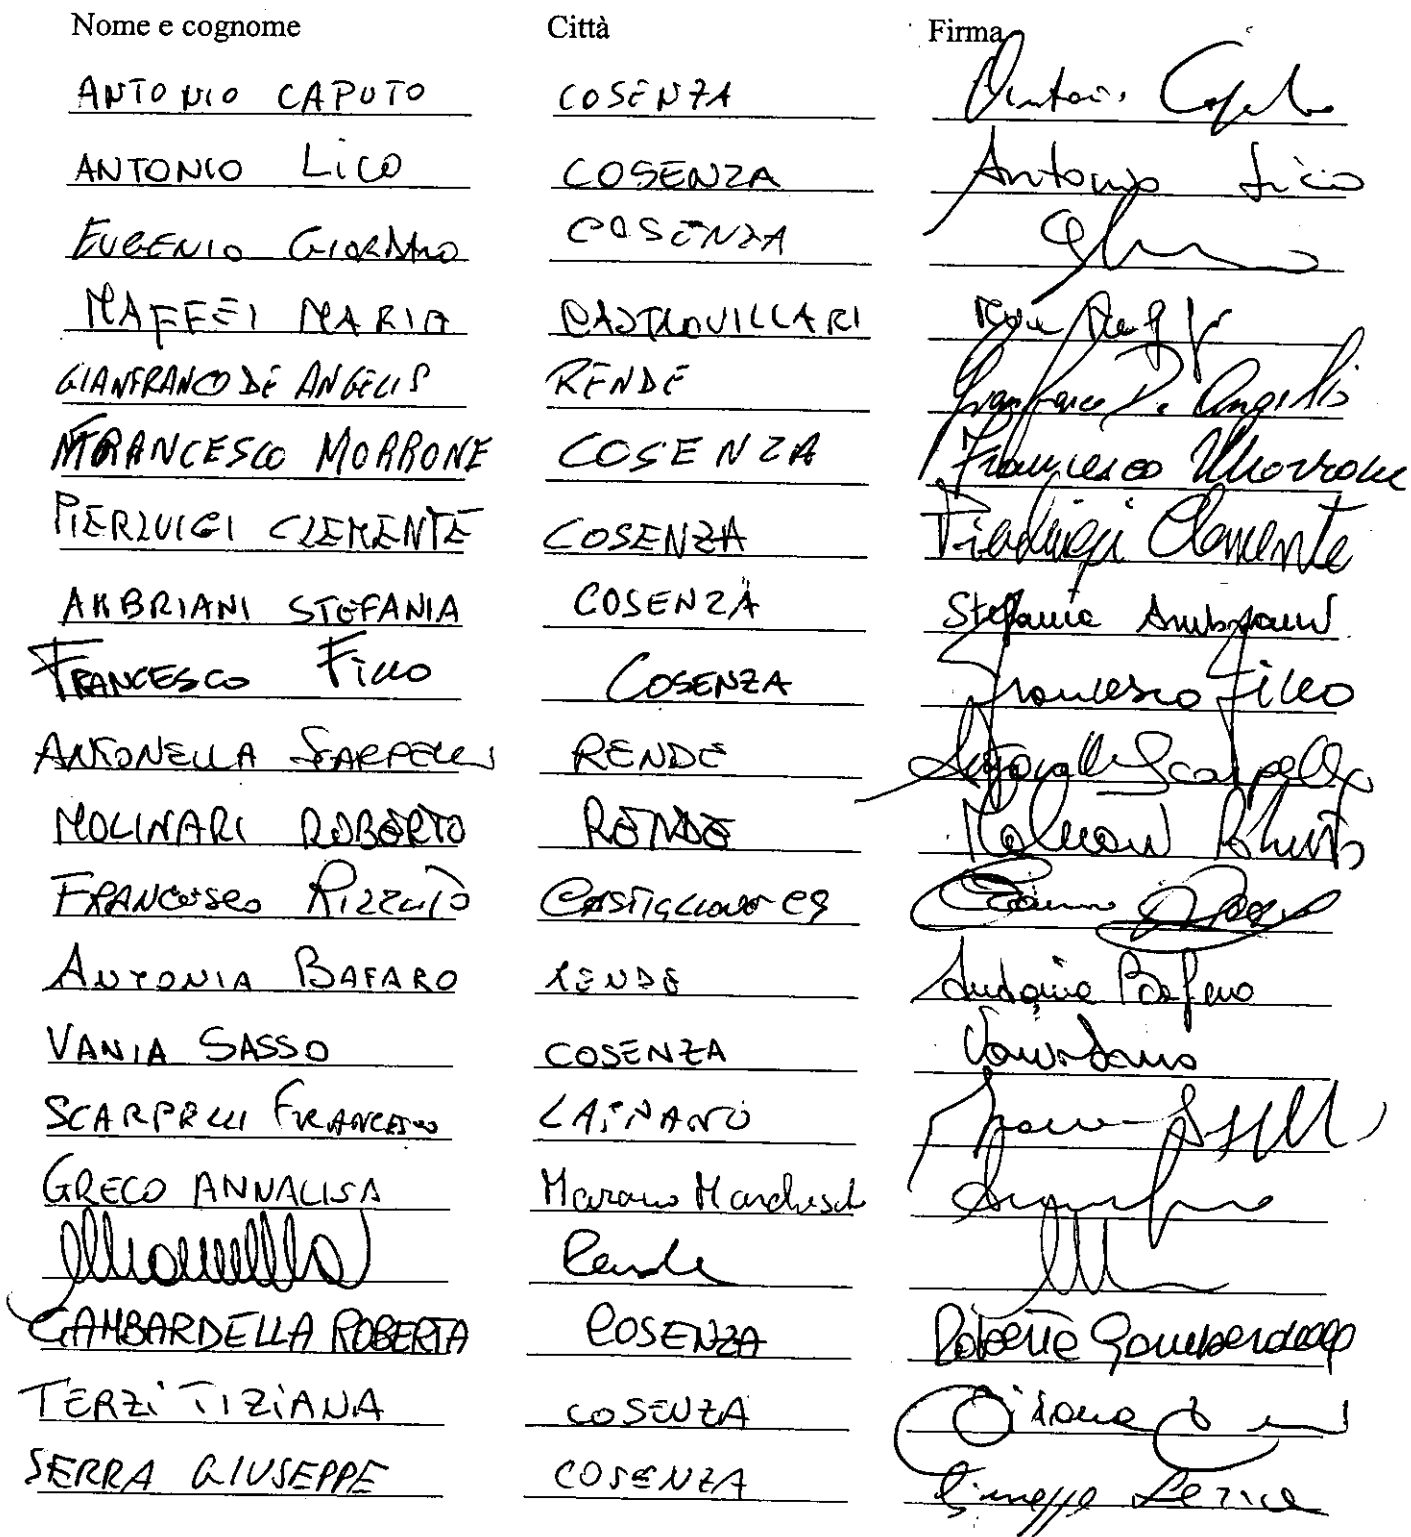 Nome e cognome Città Firma
ANTONIO CAPUTO COSENZA
ANTONIO LICO COSENZA Antonio Lico
EUGENIO GIORDANO COSENZA
MAFFEI MARIA CASTROVILLARI
GIANFRANCO DE ANGELIS RENDE Gianfranco De Angelis
FRANCESCO MORRONE COSENZA Francesco Morrone
PIERLUIGI CLEMENTE COSENZA Pierluigi Clemente
AMBRIANI STEFANIA COSENZA Stefania Ambriani
FRANCESCO FILLO COSENZA Francesco Fillo
ANTONELLA SCARPELLI RENDE Antonella Scarpelli
MOLINARI ROBERTO RENDE Molinari Roberto
FRANCESCO RIZZUTO CASTIGLIONE CS
ANTONIA BAFARO RENDE Antonia Bafaro
VANIA SASSO COSENZA Vania Sasso
SCARPELLI FRANCESCO
GRECO ANNALISA Marano Marchesato
Rende
GAMBARDELLA ROBERTA COSENZA Roberta Gambardella
TERZI TIZIANA COSENZA
SERRA GIUSEPPE COSENZA Giuseppe Serra